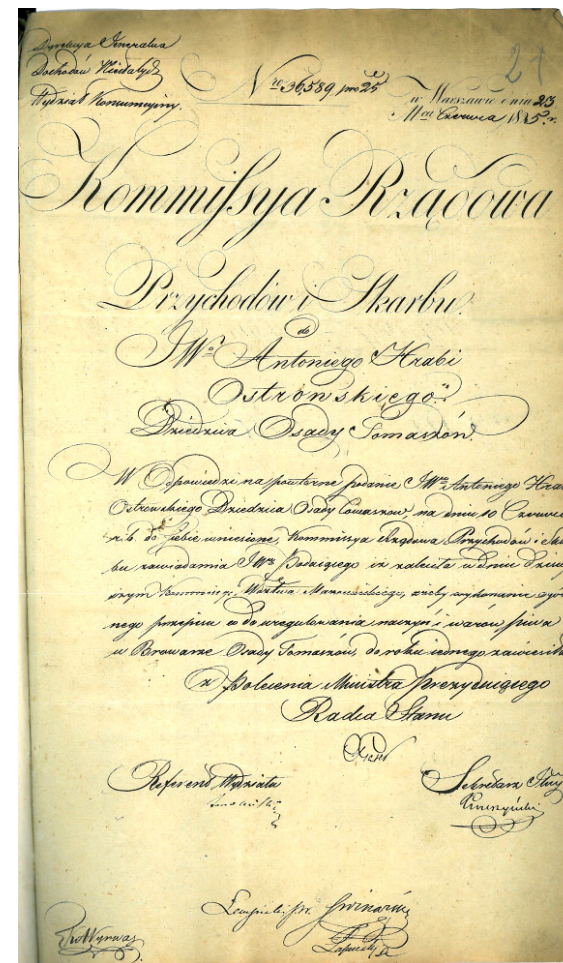 Dyrekcya Generalna
Dochodów Niestałych
Wydział Konsumcyjny.
21
Nro 36,589 pro 25
w Warszawie dnia 23
Mca Czerwca 1825. r.
Kommissya Rządowa
Przychodów i Skarbu.
do
JWo Antoniego Hrabi
Ostrowskiego.
Dziedzica Osady Tomaszów.
W Odpowiedzi na powtórne podanie JWo Antoniego Hrab
Ostrowskiego Dziedzica Osady Tomaszów, na dniu 10 Czerwca
r. b. do siebie wniesione, Kommissya Rządowa Przychodów i Skar
bu zawiadamia JWo iż zaleciła w dniu dzisiey
szym Kommissyi Wdztwa Mazowieckiego, ażeby wykonanie ogól
nego przepisu co do uregulowania naczyń i warów piwa
w Browarze Osady Tomaszów, do roku iednego zawiesiła
z Polecenia Ministra Prezyduiącego
Radca Stanu
Referend Wydziału
Sekretarz